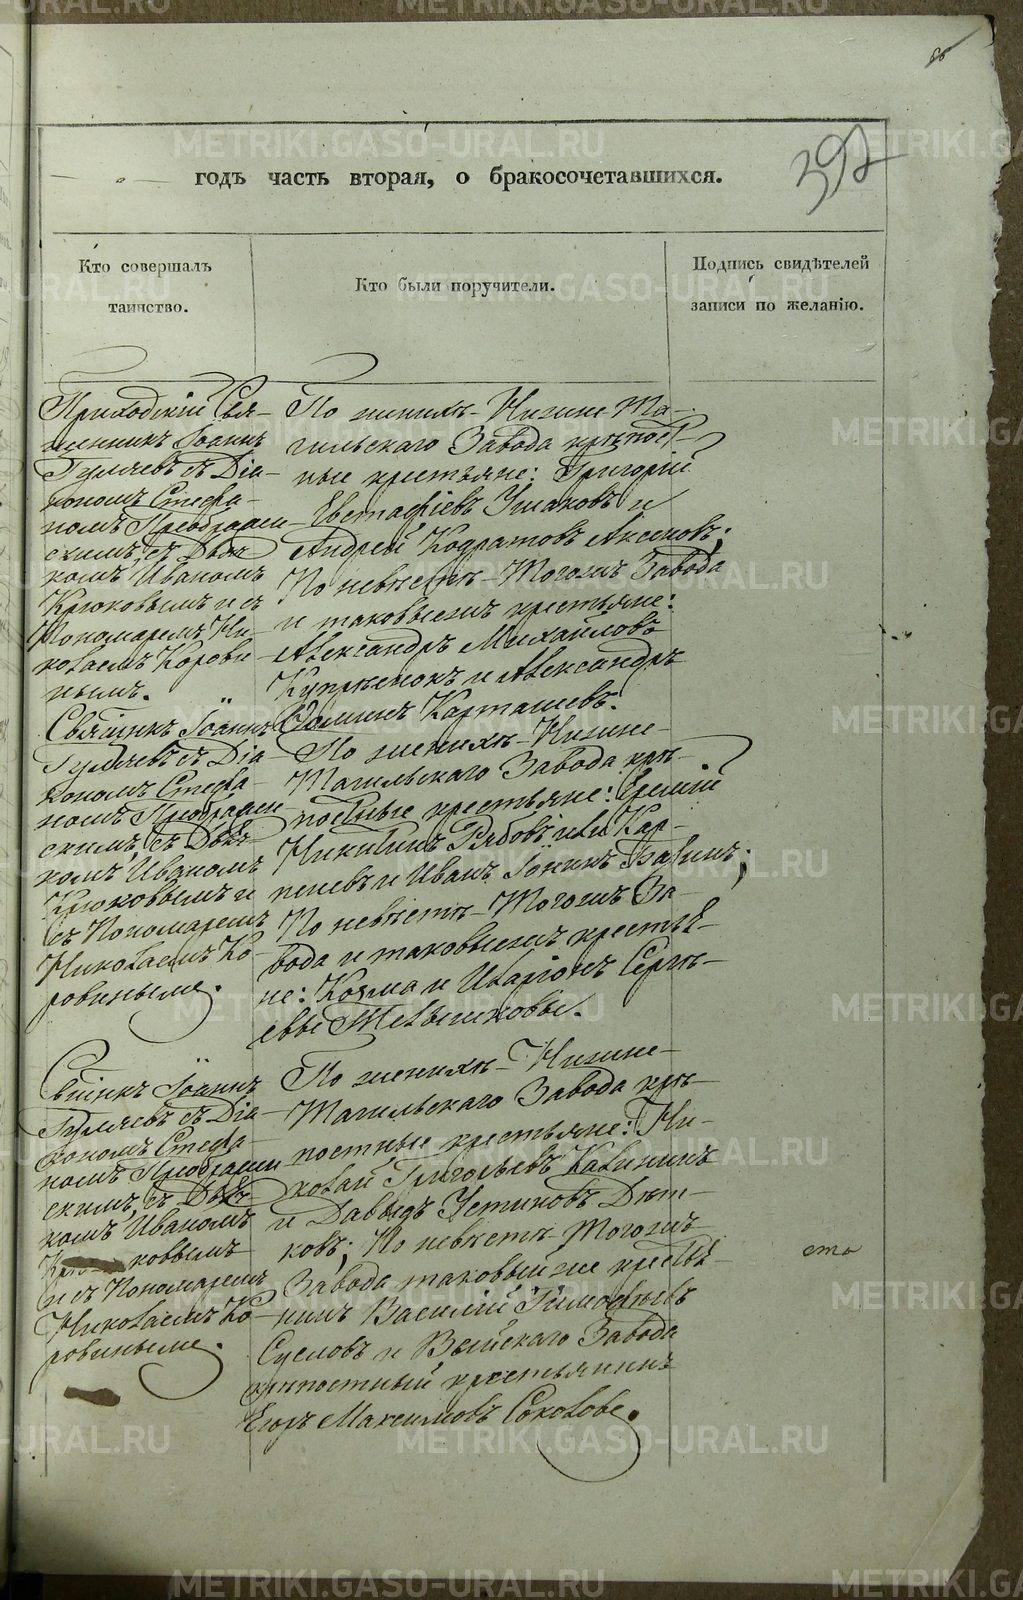 86
392
годъ часть вторая, о бракосочетавшихся.
Кто совершалъ
таинство.
Кто были поручители.
Подпись свидѣтелей
записи по желанію.
Приходскій Свя-
щенникъ Іоаннъ
Гуляевъ съ Діа-
кономъ Стефа-
номъ Преображен-
скимъ, съ Дьяч-
комъ Иваномъ
Крюковымъ и съ
Пономаремъ Ни-
колаемъ Корови-
нымъ.
По женихѣ - Нижне Та-
гильскаго Завода крѣпост-
ные крестьяне: Григорій
Евстафіевъ Ушаковъ и
Андрей Кодратовъ Аксеновъ;
По невѣстѣ - Тогожъ Завода
и таковыежъ крестьяне:
Александръ Михайловъ
Купрѣенокъ и Александръ
Ѳоминъ Карташевъ.
Свящнкъ Іоаннъ
Гуляевъ съ Діа-
кономъ Стефа-
номъ Преображен
скимъ, съ Дьяч-
комъ Иваномъ
Крюковымъ и
съ Пономаремъ
Николаемъ Ко-
ровинымъ.
По женихѣ - Нижне-
Тагильскаго Завода крѣ-
постные крестьяне: Еремій
Никитинъ Рябовъ или Кар-
пеевъ и Иванъ Іонинъ
По невѣстѣ - Тогожъ За-
вода и таковыежъ крестья-
не: Козма и Иларіонъ Сергѣ-
евы Телышковы.
Свщнкъ Іоаннъ
Гуляевъ съ Діа-
кономъ Стефа-
номъ Преображен
скимъ, съ Дьяч-
комъ Иваномъ
ковымъ
и съ Пономаремъ
Николаемъ Ко-
ровинымъ.
По женихѣ - Нижне-
Тагильскаго Завода крѣ-
постные крестьяне: Ни-
колай Григорьевъ Калининъ
и Давыдъ Устиновъ Дѣт-
ковъ; По невѣстѣ Тогожъ
Завода таковый же крестья-
нинъ Василій Тимофѣевъ
Сусловъ и Выйскаго Завода
крѣпостный крестьянинъ
Егоръ Максимовъ Соколовъ.